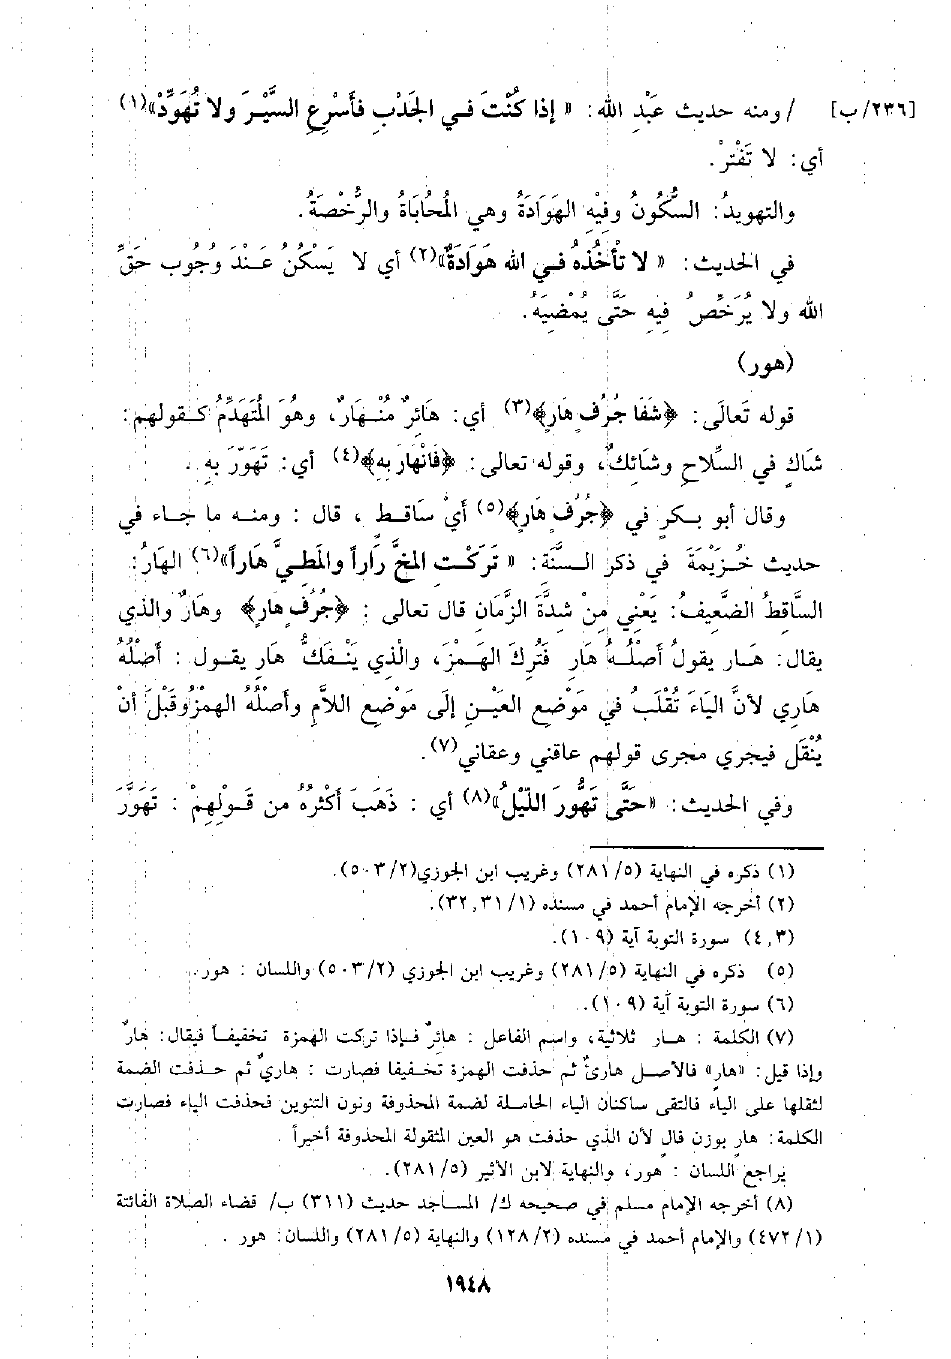 [٢٣٦/ب] / ومنه حديث عَبْدِ الله: « إذا كُنْتَ فـي الجَدْبِ فأَسْرِعِ السَّيْـرَ ولا تُهَوِّدْ»(١)
أي: لا تَفْتَرْ.
والتهويدُ: السُّكُونُ وفِيْهِ الهَوَادَةُ وهي المُحَابَاةُ والرُّخْصَةُ.
في الحديث: « لا تأْخُذُهُ فـي الله هَوَادَةٌ»(٢) أي لا يَسْكُنُ عَـنْدَ وُجُوبِ حَقِّ
الله ولا يُرَخِّصُ فِيهِ حَتَّى يُمْضِيَهُ.
(هور)
قوله تَعالَى: ﴿شَفَا جُرُفٍ هَارٍ﴾(٣) أي: هَائِرٌ مُنْـهَارٌ، وهُوَ المُتَهَدِّمُ كـقولهم:
شَاكٍ في السِّلاحِ وشَائِكٌ، وقوله تعالى: ﴿فَانْهَارَ بِهِ﴾(٤) أي: تَهَوَّرَ بِهِ .
وقال أبو بـكرٍ في ﴿جُرُفٍ هَارٍ﴾(٥) أَيْ سَاقـطٍ ، قال : ومنـه ما جـاء في
حديث خُـزَيْمَةَ في ذكرِ الـسَّنَة: « تَرَكَـتِ المخَّ رَاراً والمَطِيَّ هَاراً»(٦) الهَارُ:
السَّاقِطُ الضَّعِيفُ: يَعْنِي مِنْ شدَّةِ الزَّمَانِ قال تعالى : ﴿جُرُفٍ هارٍ﴾ وهَارٌ والذي
يقال: هَـار يقولُ أصْلُـهُ هَارِ فَتُرِكَ الهَـمْزَ، والَّذِي يَنْـفَكُّ هَارِ يقـول : أَصْلُهُ
هَارِي لأنَّ اليَاءَ تُقْلَبُ في مَوْضِعِ العَيْـنِ إلَى مَوْضِعِ اللاَّمِ وأَصْلُهُ الهمْزُ وقَبْلَ أنْ
يُنْقَل فيجري مجرى قولهم عاقني وعقاني(٧).
وفي الحديث: «حَتَّى تَهَوَّرَ اللَّيْلُ»(٨) أي : ذَهَبَ أَكْثَرُهُ من قَـوْلِهِمْ : تَهَوَّرَ
(١) ذكره في النهاية (٢٨١/٥) وغريب ابن الجوزي(٥٠٣/٢).
(٢) أخرجه الإمام أحمد في مسنده (٣٢,٣١/١).
(٤,٣) سورة التوبة آية (١٠٩).
(٥) ذكره في النهاية (٢٨١/٥) وغريب ابن الجوزي (٥٠٣/٢) واللسان : هور.
(٦) سورة التوبة آية (١٠٩).
(٧) الكلمة : هـار ثلاثية، واسم الفاعل : هائرٌ فـإذا تركت الهمزة تخفيفـاً فيقال: هارٌ
وإذا قيل: «هارٍ» فالأصـل هارئٌ ثم حذفت الهمزة تخـفيفا فصارت : هاريٌ ثم حـذفت الضمة
لثقلها على الياء فالتقى ساكنان الياء الحاملة لضمة المحذوفة ونون التنوين فحذفت الياء فصارت
الكلمة: هارٍ بوزن فالٍ لأن الذي حذفت هو العين المثقولة المحذوفة أخيراً .
يراجع اللسان : هور، والنهاية لابن الأثير (٢٨١/٥).
(٨) أخرجه الإمام مسلم في صحيحه ك/ المساجد حديث (٣١١) ب/ قضاء الصلاة الفائتة
(٤٧٢/١) والإمام أحمد في مسنده (١٢٨/٢) والنهاية (٢٨١/٥) واللسان: هور .
١٩٤٨